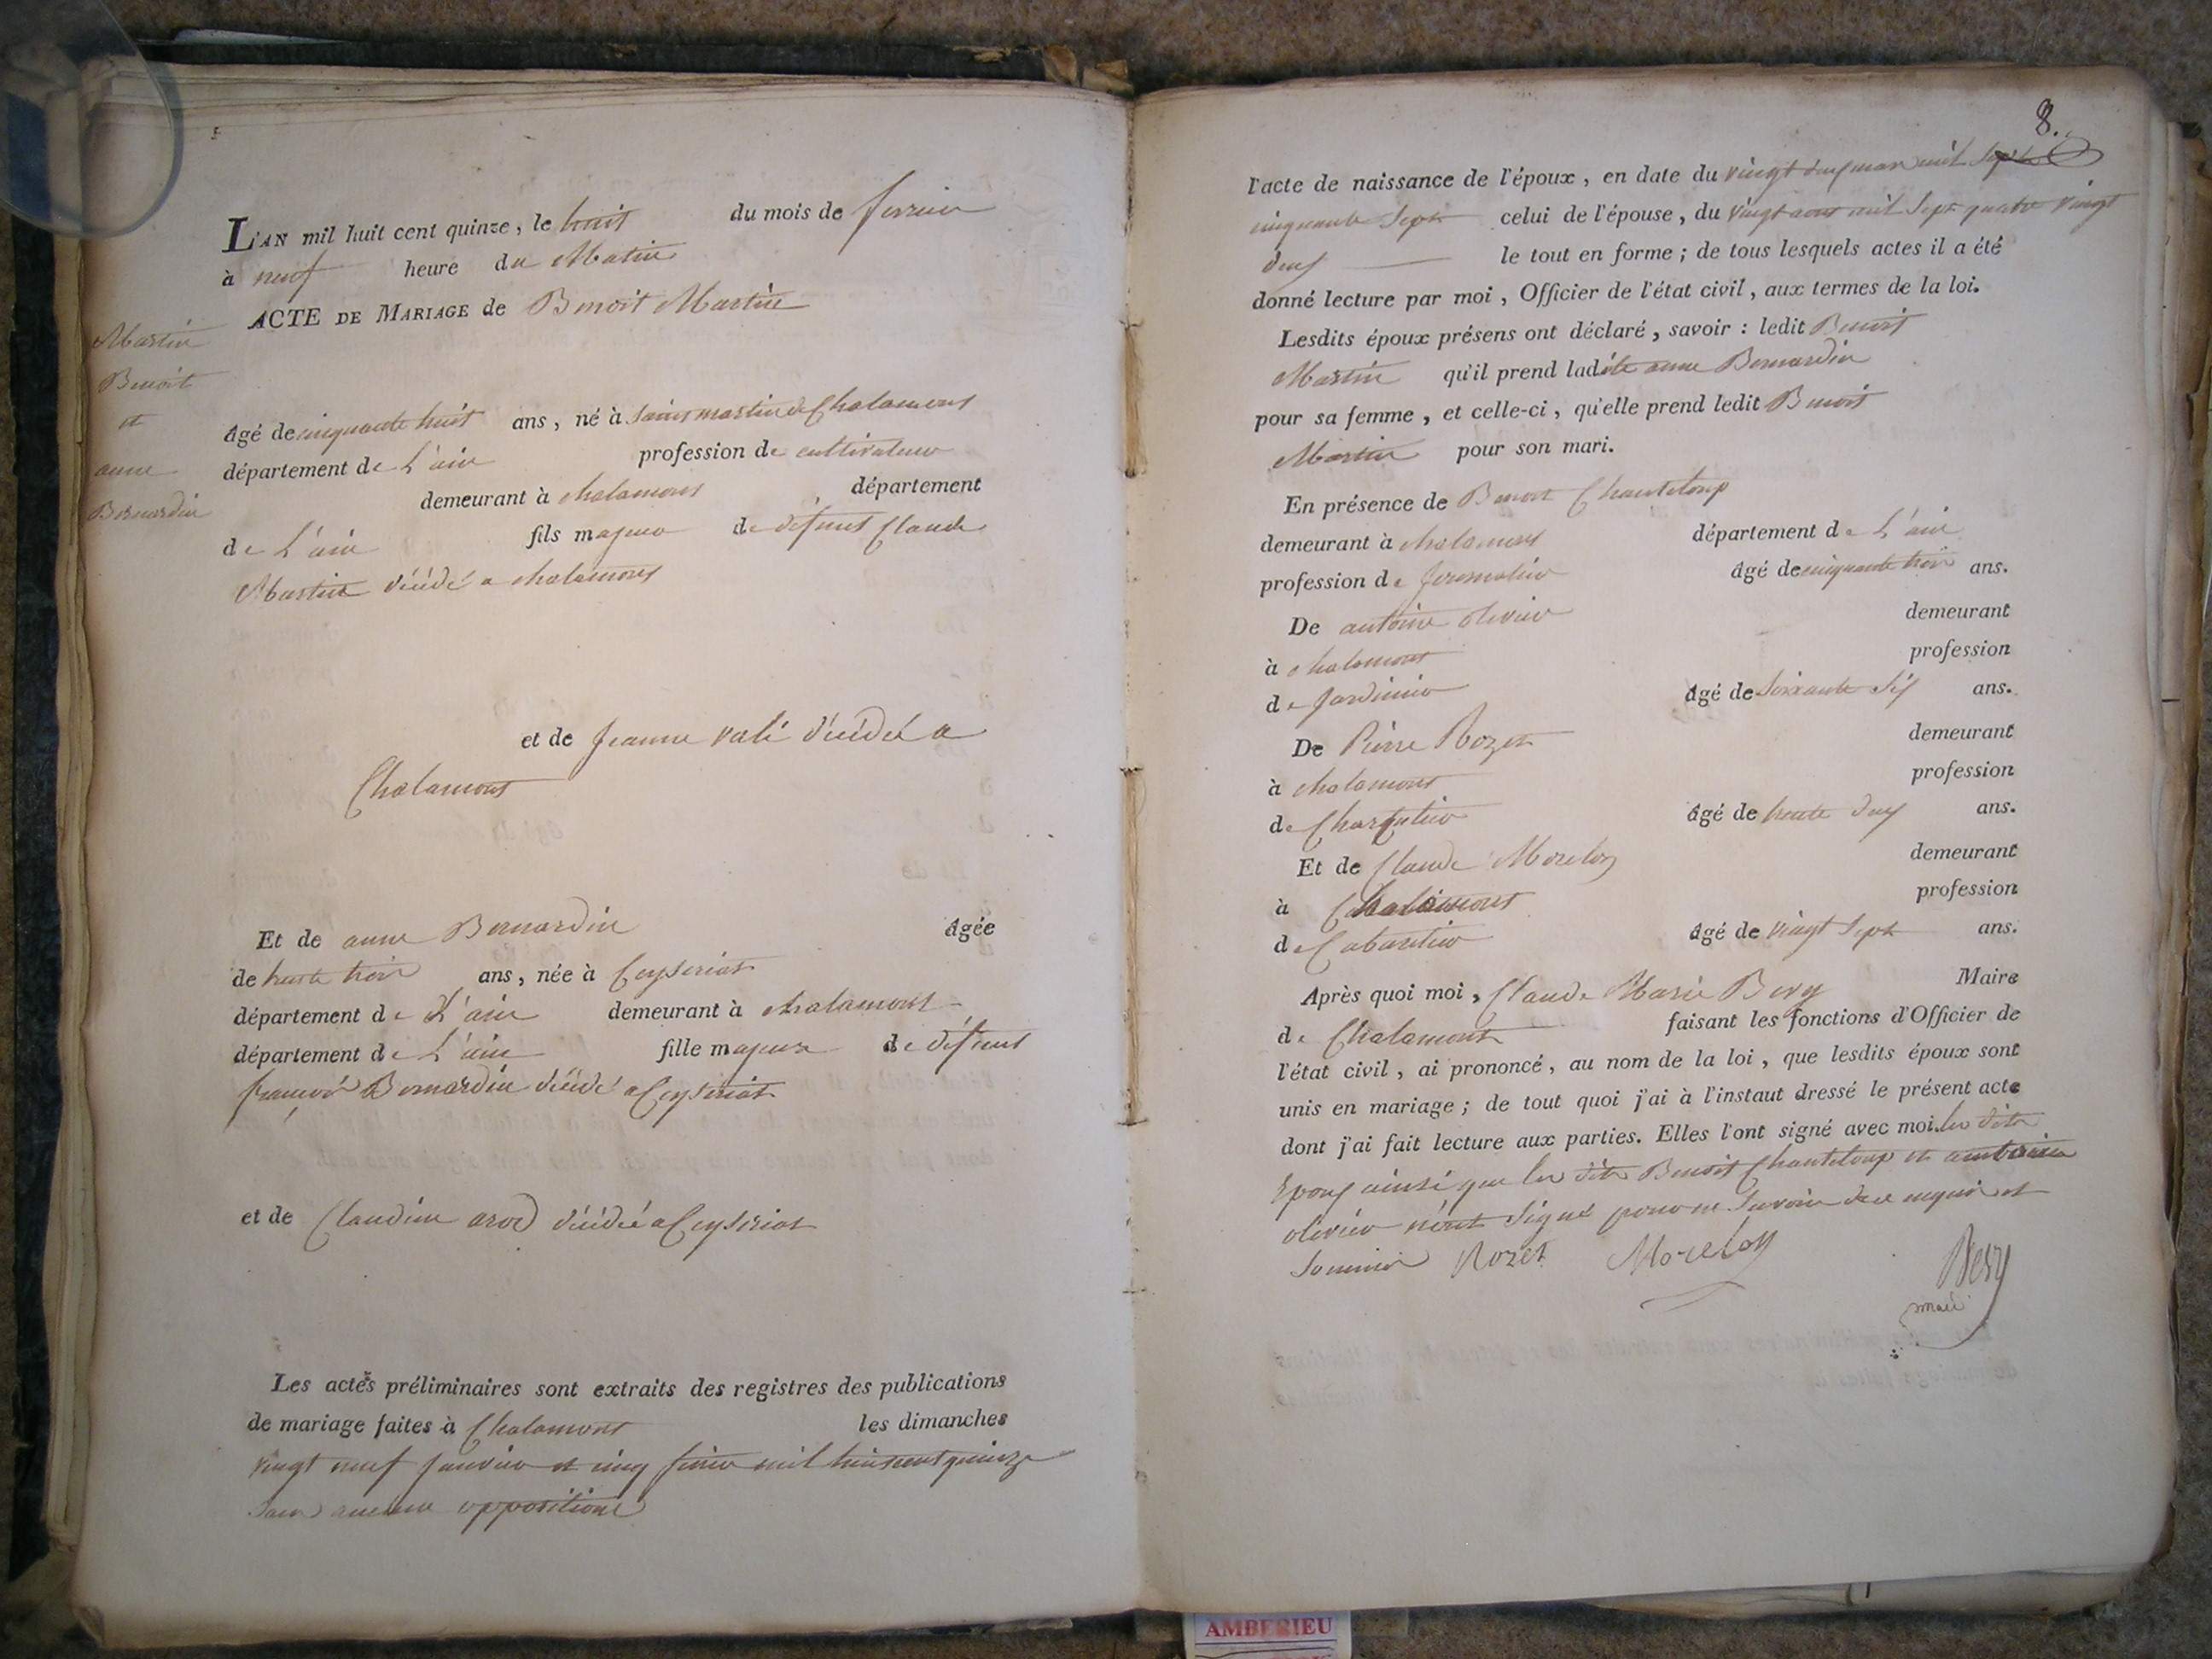 L'AN mil huit cent quinze, le huit du mois de fevrier
à neuf heure du Matin
ACTE DE MARIAGE de Benoit Martin
Martin
Benoit
et
anne
Bernardin
âgé de cinquante huit ans, né à Saint martin de Chalamont
département de L'ain profession de cultivateur
demeurant à chalamont département
de L'ain fils majeur de défunt Claude
Martin décédé a chalamont
et de Jeanne vali décédée a
Chalamont
Et de anne Bernardin âgée
de trente trois ans, née à Ceyseriat
département de L'ain demeurant à chalamont
département de L'ain fille majeure de défunt
françois Bernardin décédé a Ceyseriat
et de Claudine arod décédée a Ceyseriat
Les actes préliminaires sont extraits des registres des publications
de mariage faites à Chalamont les dimanches
vingt neuf janvier et cinq fevrier mil huit cent quinze
sans aucune opposition
8.
l'acte de naissance de l'époux, en date du vingt deux mars mil sept
cinquante sept celui de l'épouse, du vingt aout mil sept quatre vingt
deux le tout en forme; de tous lesquels actes il a été
donné lecture par moi, Officier de l'état civil, aux termes de la loi.
Lesdits époux présens ont déclaré, savoir: ledit Benoit
Martin qu'il prend ladite anne Bernardin
pour sa femme, et celle-ci, qu'elle prend ledit Benoit
Martin pour son mari.
En présence de Benoit Chanteloup
demeurant à chalamont département de L'ain
profession de âgé de cinquante trois ans.
De antoine olivier demeurant
à chalamont profession
de Jardinier âgé de soixante six ans.
De Pierre Rozet demeurant
à chalamont profession
de Charpentier âgé de trente deux ans.
Et de Claude Morelon demeurant
à Chalamont profession
de Cabaretier âgé de vingt sept ans.
Après quoi moi, Claude Marie Bery Maire
de Chalamont faisant les fonctions d'Officier de
l'état civil, ai prononcé, au nom de la loi, que lesdits époux sont
unis en mariage; de tout quoi j'ai à l'instaut dressé le présent acte
dont j'ai fait lecture aux parties. Elles l'ont signé avec moi. les dits
Epoux ainsi que les dits Benoit Chanteloup et antoine
olivier n'ont signé pour ne savoir de ce enquis et
sommés Rozet Morelon Bery
maire
AMBERIEU